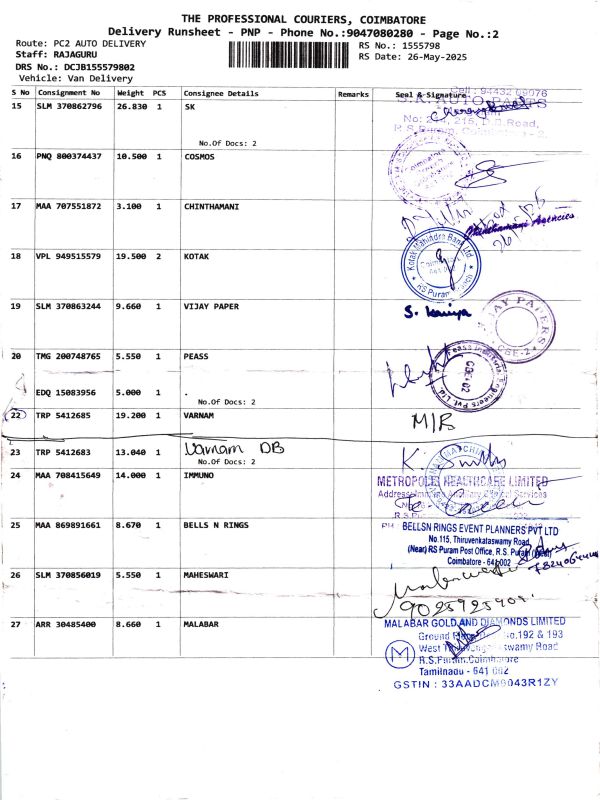 THE PROFESSIONAL COURIERS, COIMBATORE
Delivery Runsheet - PNP - Phone No.:9047080280 - Page No.:2
Route: PC2 AUTO DELIVERY
RS No.: 1555798
Staff: RAJAGURU
RS Date: 26-May-2025
DRS No.: DCJB155579802
Vehicle: Van Delivery
S No Consignment No Weight PCS Consignee Details Remarks Seal & Signature
15 SLM 370862796 26.830 1 SK
No.Of Docs: 2
Cell : 94432 09076
S.K. AUTO PARTS
215, D.B.Road,
R.S.Puram, Coimbatore - 2.
16 PNQ 800374437 10.500 1 COSMOS
17 MAA 707551872 3.100 1 CHINTHAMANI
Chinthamani Agencies
18 VPL 949515579 19.500 2 KOTAK
Kotak Mahindra Bank Ltd
RS Puram
19 SLM 370863244 9.660 1 VIJAY PAPER
S. Kaniya
VIJAY PAPERS
CBE-2
20 TMG 200748765 5.550 1 PEASS
EDQ 15083956 5.000 1 .
No.Of Docs: 2
Peass Industrial Engineers Pvt Ltd
CBE-02
22 TRP 5412685 19.200 1 VARNAM
M/R
23 TRP 5412683 13.040 1 Varnam DB
No.Of Docs: 2
24 MAA 708415649 14.000 1 IMMUNO
METROPOLIS HEALTHCARE LIMITED
25 MAA 869891661 8.670 1 BELLS N RINGS
BELLSN RINGS EVENT PLANNERS PVT LTD
No.115, Thiruvenkataswamy Road,
(Near) RS Puram Post Office, R.S. Puram
Coimbatore - 641 002
26 SLM 370856019 5.550 1 MAHESWARI
27 ARR 30485400 8.660 1 MALABAR
MALABAR GOLD AND DIAMONDS LIMITED
Ground No.192 & 193
West Swamy Road
R.S.Puram, Coimbatore
Tamilnadu - 641 002
M
GSTIN : 33AADCM9043R1ZY